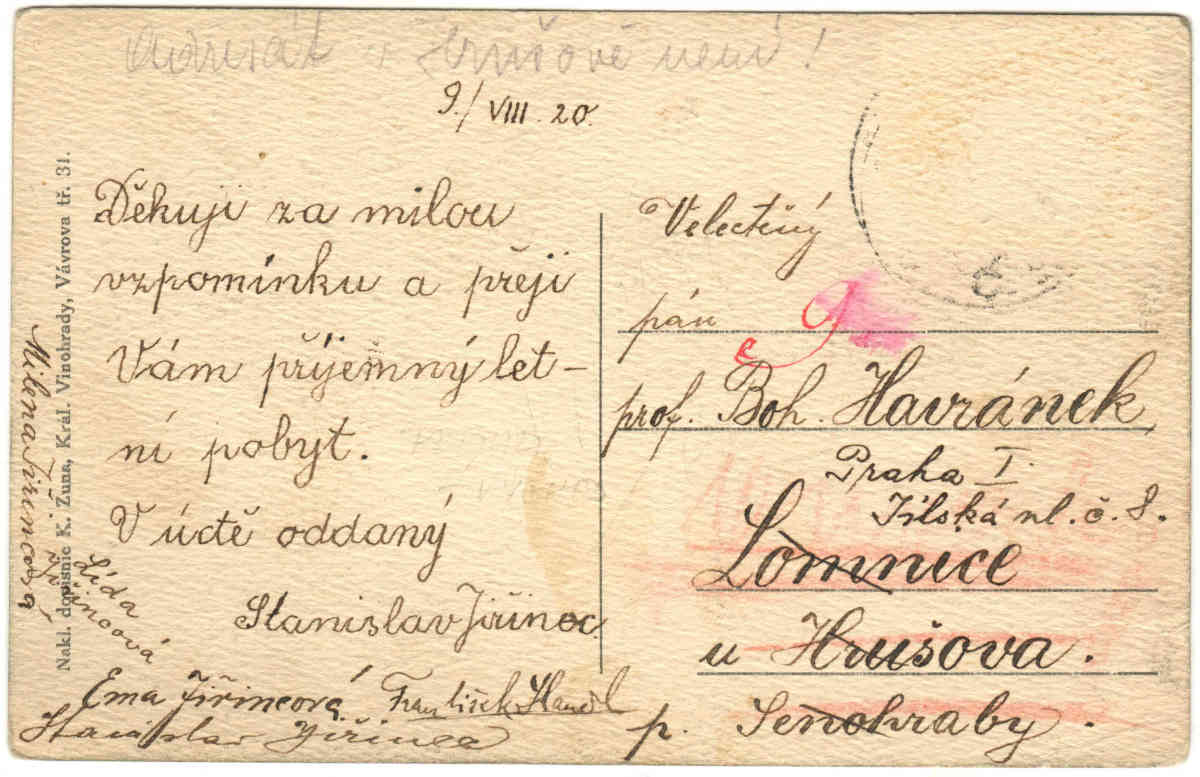 Adresát v Hrušově není!
9./VIII. 20.
Děkuji za milou
vzpomínku a přeji
Vám příjemný let-
ní pobyt.
V úctě oddaný
Stanislav Jiřinec
Milena Jiřincová
Lída
Jiřincová
Ema Jiřincová František
Stanislav Jiřinec
Nakl. dopisnic K. Žuna, Král. Vinohrady, Vávrova tř. 31.
Velectěný
pán
prof. Boh. Havránek
Praha I.
Jilská ul. č. 8.
Lomnice
u Hrušova.
p. Senohraby.